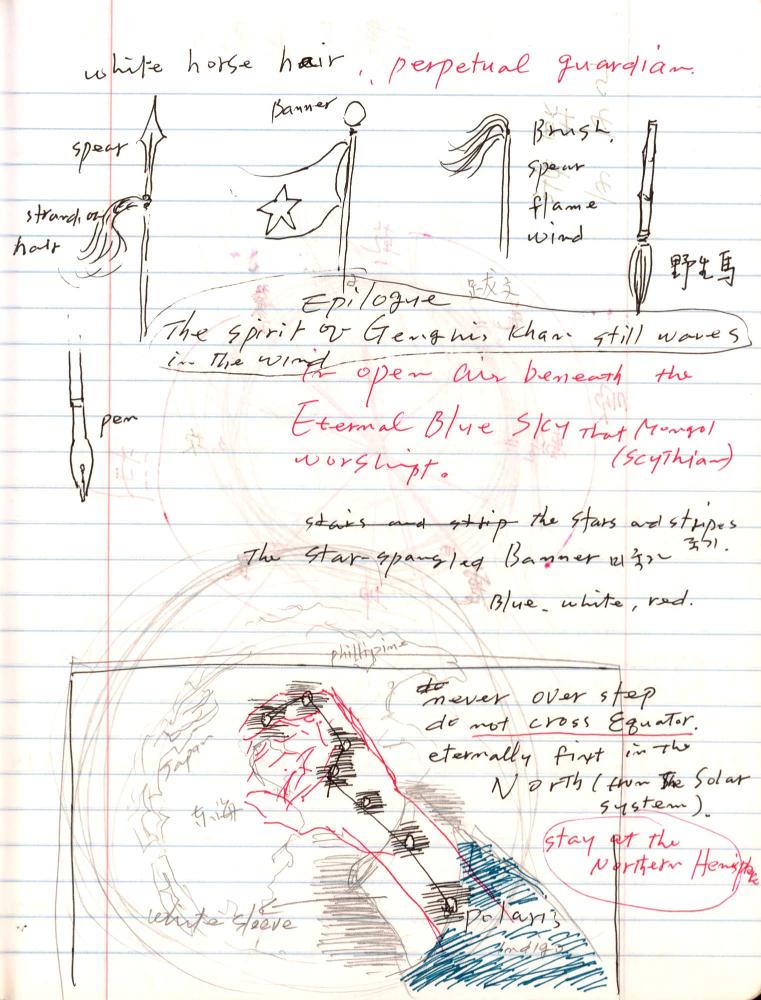 white horse hair, perpetual guardian.
Banner
spear
strand of
hair
Brush,
spear
flame
wind
野生馬
Epilogue
The spirit of Genghis Khan still waves
in the wind
In open air beneath the
Eternal Blue Sky that Mongol
(Scythian)
worshipt.
pen
stars and strip the stars and stripes
The Star-spangled Banner 미국기 국기.
Blue, white, red.
phillipine
never over step
do not cross Equator.
eternally first in the
North (from the Solar
system).
stay at the
Northern Hemisphere
Japan
东海
white sleeve
polaris
indigo